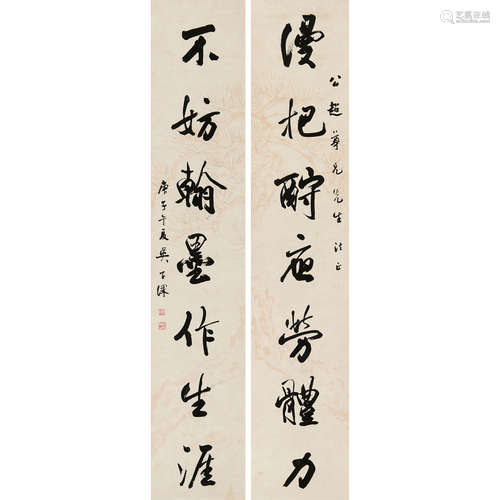 漫把酬應勞體力
公超尊兄先生法正
不妨翰墨作生涯
庚子午夏吳子深